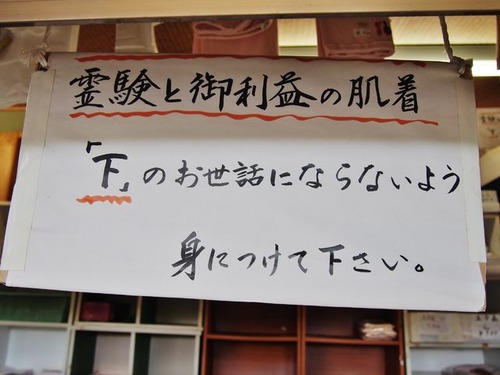 霊験と御利益の肌着
「下」のお世話にならないよう
身につけて下さい。